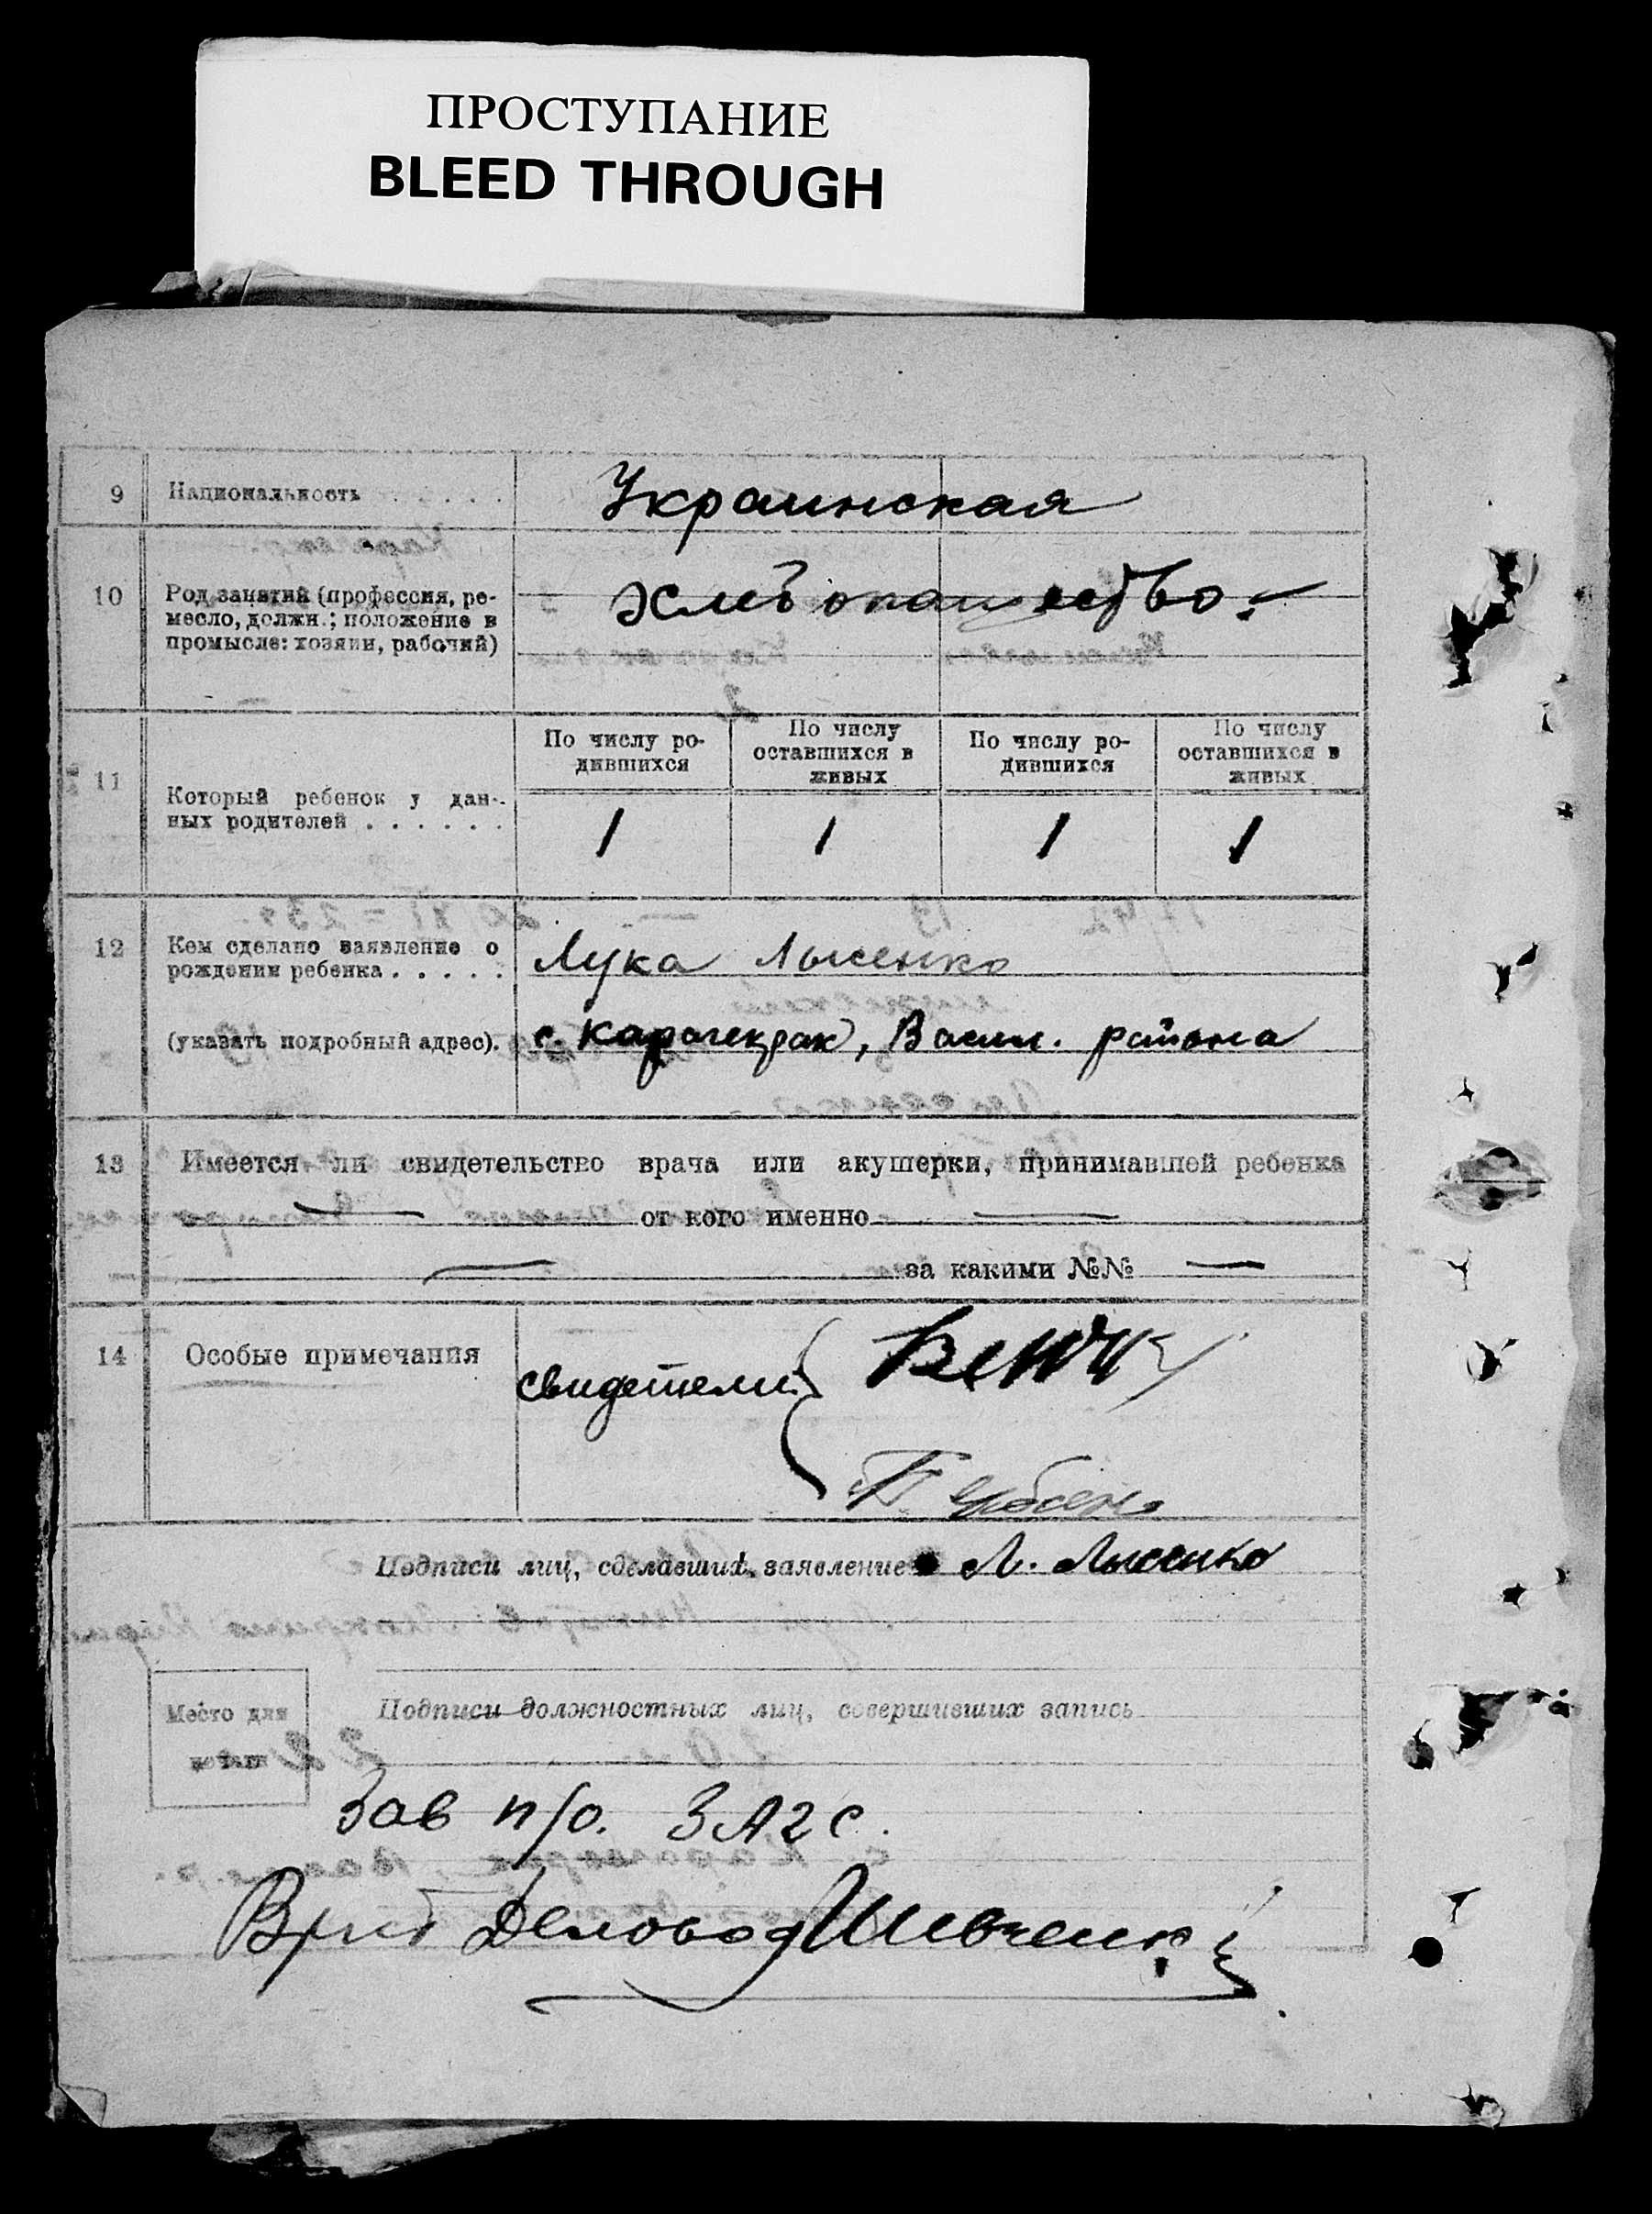 ПРОСТУПАНИЕ
BLEED THROUGH
9 Национальность . . . . . Украинская
10 Род занятий (профессия, ре-
месло, должн.; положение в
промысле: хозяин, рабочий)
Хлебопашество.
11 Который ребенок у дан-
ных родителей . . . . . .
По числу ро-
дившихся
По числу
оставшихся в
живых
По числу ро-
дившихся
По числу
оставшихся в
живых
1 1 1 1
12 Кем сделано заявление о
рождении ребенка . . . . .
Лука Лысенко
(указать подробный адрес). с. Карачекрак, Васил. района
13 Имеется ли свидетельство врача или акушерки, принимавшей ребенка
— от кого именно —
— за какими №№ —
14 Особые примечания
свидетели
Подписи лиц, сделавших заявление Л. Лысенко
Подписи должностных лиц, совершивших запись
Место для
печати
Зав п/о. ЗАГС.
Врид Деловод Шевченк